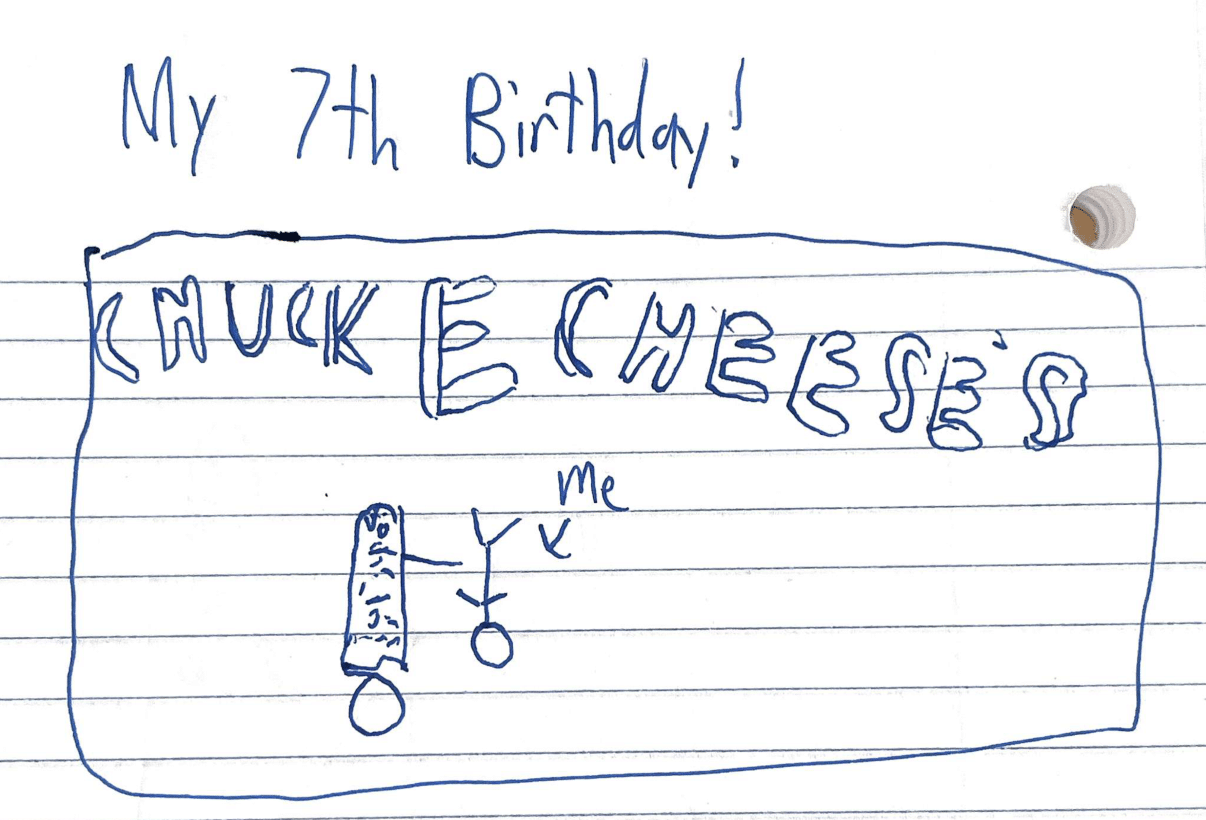 My 7th Birthday!
CHUCK E CHEESE'S
Me